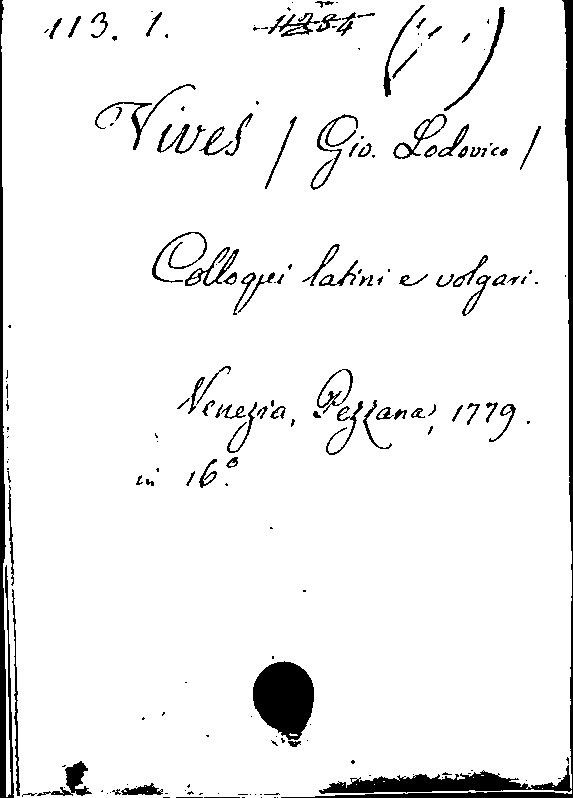 113. 1. 11284
Vives / Gio. Lodovico /
Colloqui latini e volgari.
Venezia, Pezzana, 1779.
in 16.°